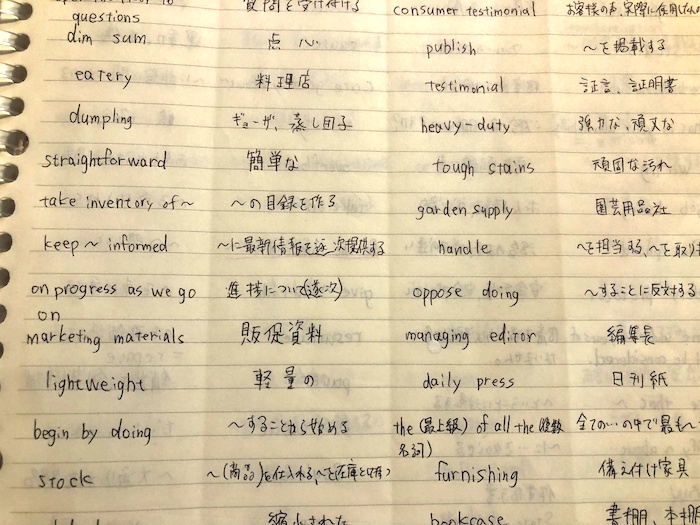 questions 質問を受け付ける consumer testimonial
dim sum 点心 publish ～を掲載する
eatery 料理店 testimonial 証言、証明書
dumpling ギョーザ、蒸し団子 heavy-duty 強力な、頑丈な
straightforward 簡単な tough stains 頑固な汚れ
take inventory of ～ ～の目録を作る garden supply 園芸用品社
keep ～ informed ～に最新情報を逐次提供する handle ～を担当する、～を取り
on progress as we go 進捗について(逐次) oppose doing ～することに反対する
on
marketing materials 販促資料 managing editor 編集長
lightweight 軽量の daily press 日刊紙
begin by doing ～することから始める the (最上級) of all the 複数 全ての…の中で最も～
名詞)
stock ～(商品)を仕入れる、～を在庫として furnishing 備え付け家具
縮小された bookcase 書棚、本棚